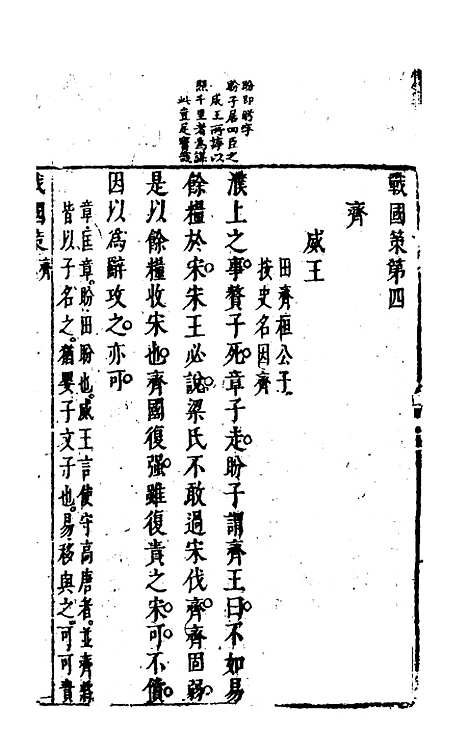 戰國策第四
齊
威王
田齊桓公子
按史名因齊
濮上之事贅子死章子走盼子謂齊王曰不如易
餘糧於宋宋王必說梁氏不敢過宋伐齊齊固弱
是以餘糧收宋也齊國復强雖復責之宋可不償
因以為辭攻之亦可
章匡章盼田盼也威王言使守高唐者並齊將
皆以子名之猶嬰子文子也易移與之可可責
戰國策 齊
盼即盻字
盼子居四臣之
威王所導以
照千里者為謀
此豈足寶哉